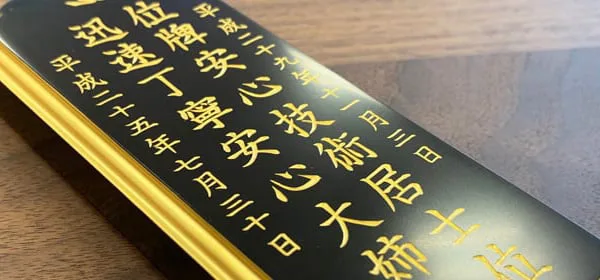 平成二十九年十一月三日
位牌安心技術居士位
迅速丁寧安心大姉
平成二十五年七月三十日